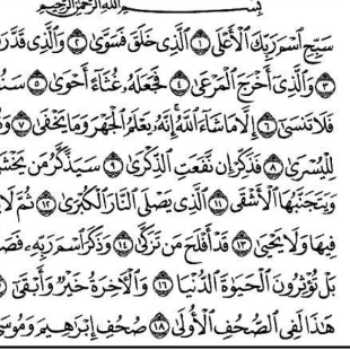 بِسْمِ اللَّهِ الرَّحْمَٰنِ الرَّحِيمِ
سَبِّحِ اسْمَ رَبِّكَ الْأَعْلَى ١ الَّذِي خَلَقَ فَسَوَّىٰ ٢ وَالَّذِي قَدَّرَ
٣ وَالَّذِي أَخْرَجَ الْمَرْعَىٰ ٤ فَجَعَلَهُ غُثَاءً أَحْوَىٰ ٥ سَنُ
فَلَا تَنسَىٰ ٦ إِلَّا مَا شَاءَ اللَّهُ إِنَّهُ يَعْلَمُ الْجَهْرَ وَمَا يَخْفَىٰ ٧ وَنُ
لِلْيُسْرَىٰ ٨ فَذَكِّرْ إِن نَّفَعَتِ الذِّكْرَىٰ ٩ سَيَذَّكَّرُ مَن يَخْشَ
وَيَتَجَنَّبُهَا الْأَشْقَى ١١ الَّذِي يَصْلَى النَّارَ الْكُبْرَىٰ ١٢ ثُمَّ لَا
فِيهَا وَلَا يَحْيَىٰ ١٣ قَدْ أَفْلَحَ مَن تَزَكَّىٰ ١٤ وَذَكَرَ اسْمَ رَبِّهِ فَصَ
بَلْ تُؤْثِرُونَ الْحَيَاةَ الدُّنْيَا ١٦ وَالْآخِرَةُ خَيْرٌ وَأَبْقَىٰ
هَٰذَا لَفِي الصُّحُفِ الْأُولَىٰ ١٨ صُحُفِ إِبْرَاهِيمَ وَمُوسَ